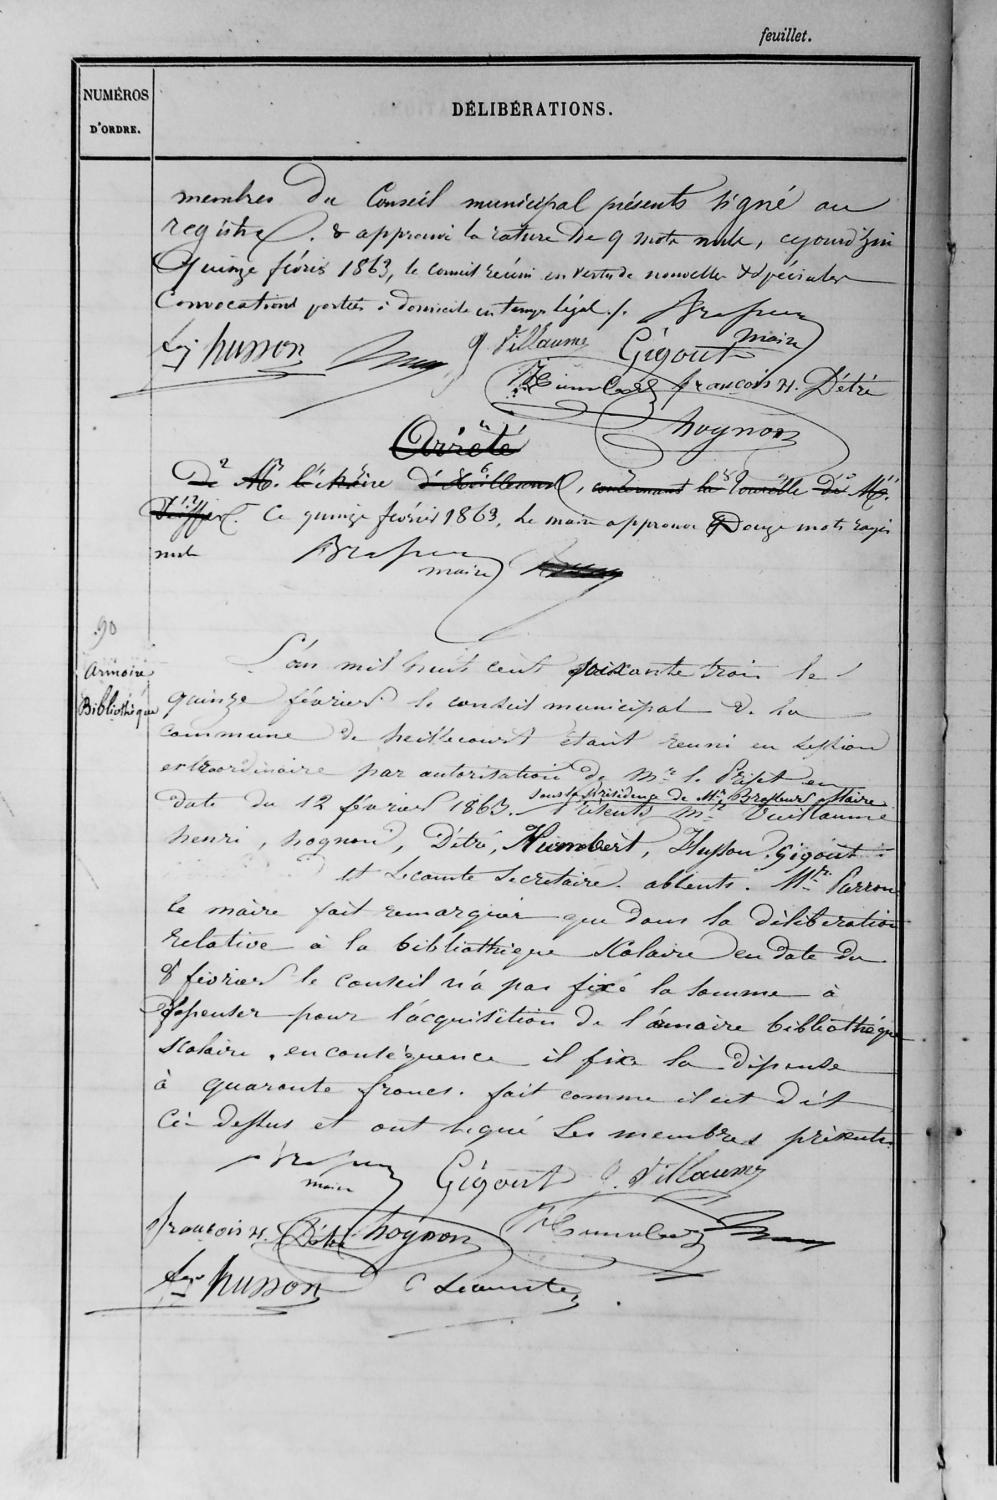 feuillet.
NUMÉROS
D'ORDRE.
DÉLIBÉRATIONS.
membres du Conseil municipal présents signé au
registre. & approuvé la rature de 9 mots nuls, cejourd'hui
Quinze février 1863, le conseil réuni en vertu de nouvelles & spéciales
Convocations portées à domicile en temps légal ./.
maire
husson
J Villaume
Gigout
françois H. Détré
hognon
Arrêté
De Mr. le Maire d'heillecourt, concernant la De Mr.
Ce quinze février 1863, le maire approuve Douze mots rayés
nuls
maire
90
Armoire
Bibliothèque
L'an mil huit cent soixante trois le
quinze février le conseil municipal de la
commune de heillecourt étant reuni en session
extraordinaire par autorisation de Mr. le Préfet en
sous la Présidence de Mr. Brasseur Maire
date du 12 février 1863. Présents Mrs. Vuillaume
henri, hognon, Détré, Humbert, Husson, Gigout
et Lecomte Secretaire. absents. Mr.
le maire fait remarquer que dans la délibération
relative à la bibliothèque scolaire en date du
8 février le conseil n'a pas fixé la somme à
dépenser pour l'acquisition de l'armoire bibliothéque
scolaire, en conséquence il fixe la dépense
à quarante francs. fait comme il est dit
Ci-dessus et ont signé les membres présents
maire
Gigout
J. Villaume
françois H. Détré
hognon
husson
C Lecomte